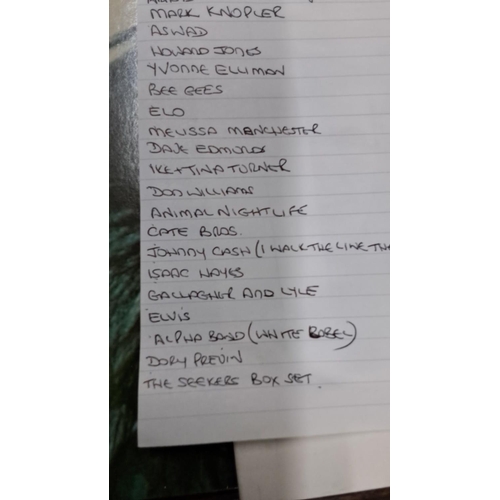 MARK KNOPLER
ASWAD
HOWARD JONES
YVONNE ELLIMAN
BEE GEES
ELO
MELISSA MANCHESTER
DAVE EDMONDS
IKE + TINA TURNER
DON WILLIAMS
ANIMAL NIGHTLIFE
CATE BROS.
JOHNNY CASH (I WALK THE LINE
ISAAC HAYES
GALLAGHER AND LYLE
ELVIS
ALPHA BAND (WHITE
DORY PREVIN
THE SEEKERS BOX SET.